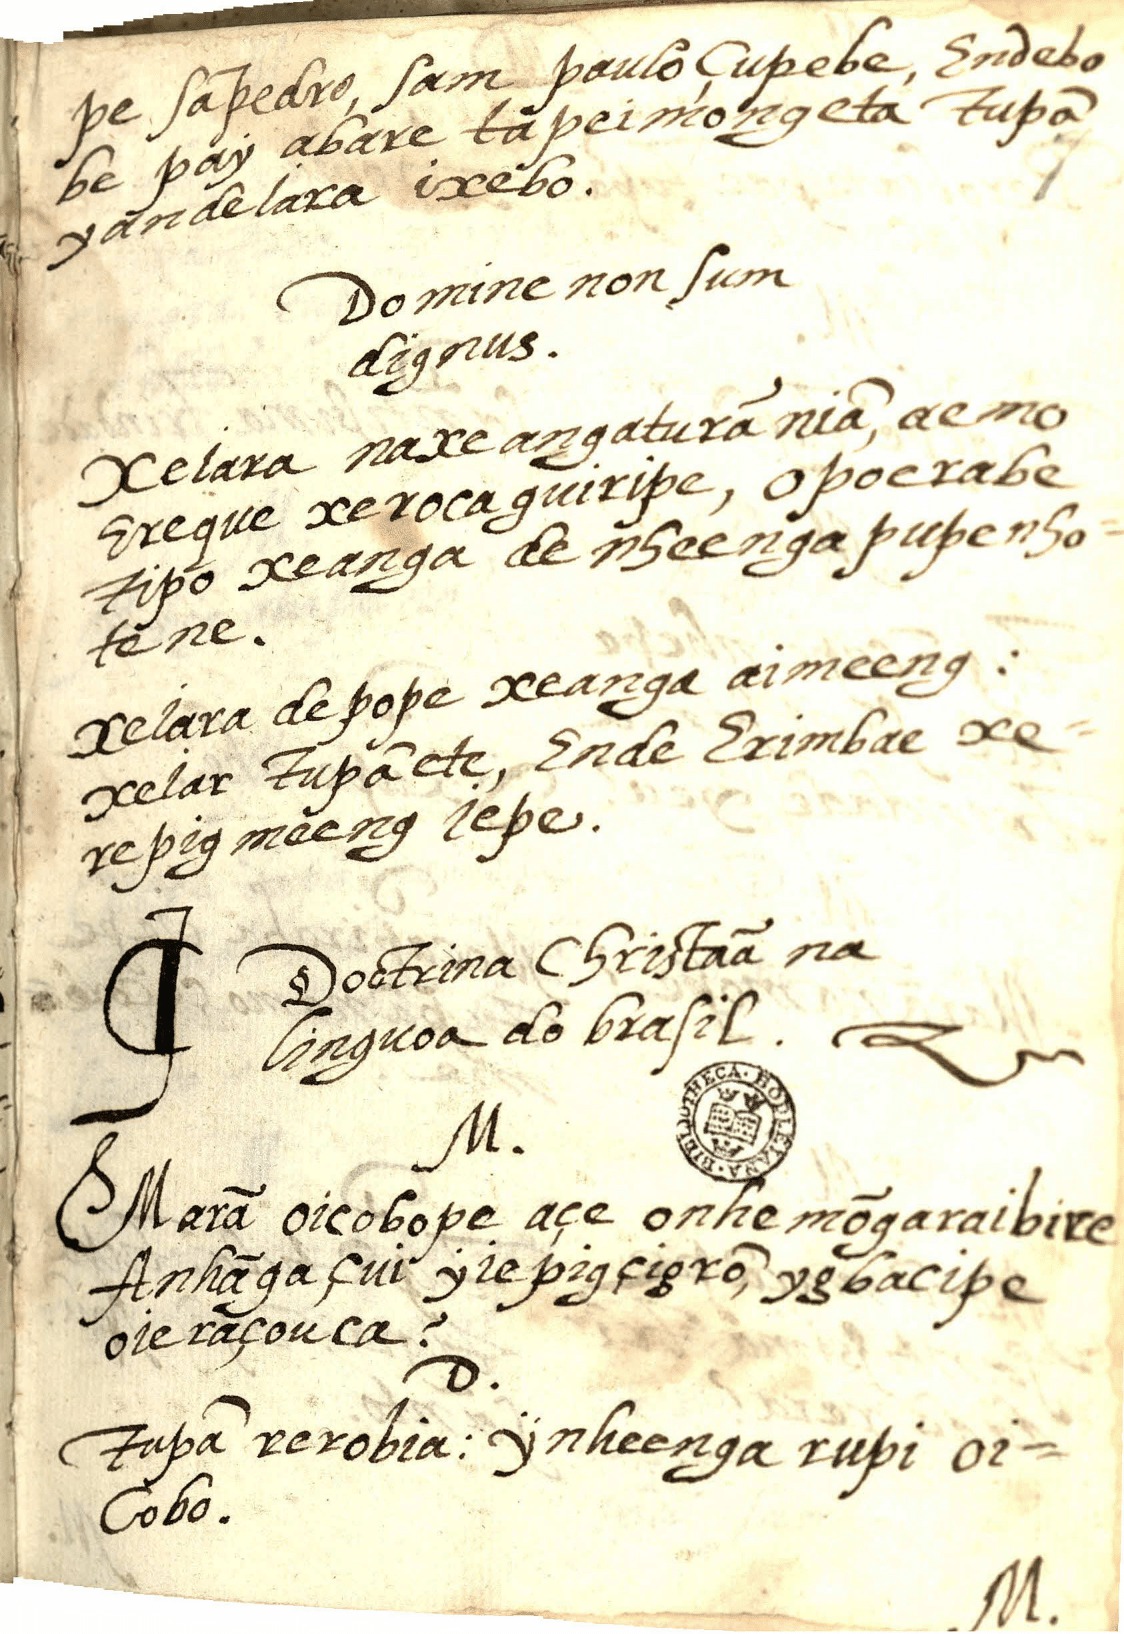 pe Sãpedro, Sam paulo, Çupebe, Endebo
be pay abare tapeimongeta Tupã
yandeiara ixebo.
7
Domine non sum
dignus.
Xeiara naxeangaturã niã, aemo
Ereque xerocaguiripe, opoerabe
tipo xeanga de nheenga pupenho-
tene.
Xeiara depope xeanga aimeeng:
xeiar Tupã ete, Ende Erimbae xe-
repig meeng iepe.
Doctrina Christaã na
linguoa do brasil.
BIBLIOTHECA · BODLEIANA ·
M.
Marã oicobope açe onhemõgaraibire
Anhãga çui ÿiepigçigrõ, ygbacipe
oierãçouca?
D.
Tupã rerobia: ÿnheenga rupi oi-
Cobo.
M.